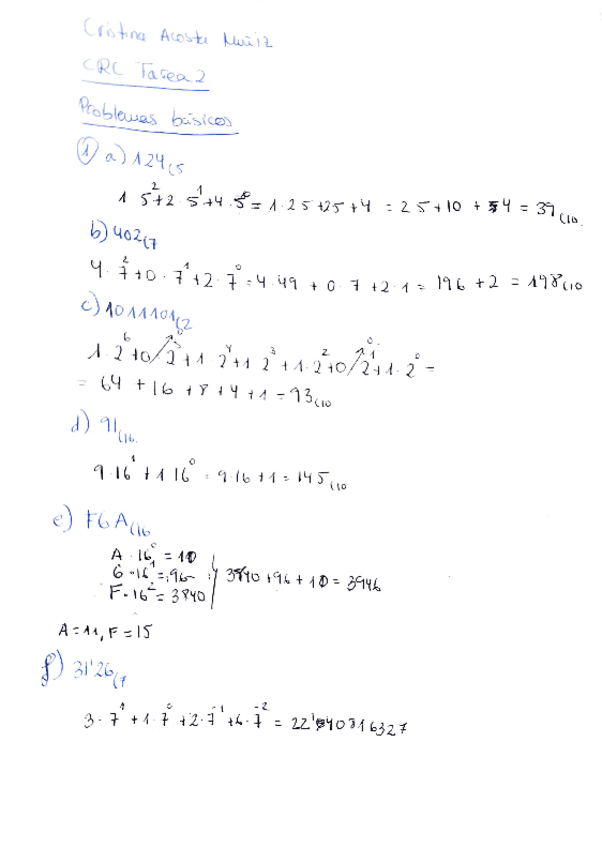 Cristina Acosta Muñiz
CRC Tarea 2
Problemas básicos
1 a) 124(5
1 5² + 2 · 5¹ + 4 · 5⁰ = 1 · 25 + 25 + 4 = 25 + 10 + 4 = 39(10.
b) 402(7
4 · 7² + 0 · 7¹ + 2 · 7⁰ = 4 · 49 + 0 · 7 + 2 · 1 = 196 + 2 = 198(10
c) 1011101(2
1 · 2⁶ + 0/2⁵ + 1 2⁴ + 1 2³ + 1 · 2² + 0/2¹ + 1 · 2⁰ =
= 64 + 16 + 8 + 4 + 1 = 93(10
d) 91(16.
9 · 16¹ + 1 16⁰ = 9 · 16 + 1 = 145(10
e) F6A(16
A · 16⁰ = 10
6 · 16¹ = 96
F · 16² = 3840
3840 + 96 + 10 = 3946
A = 11, F = 15
f) 31'26(7
3 · 7¹ + 1 · 7⁰ + 2 · 7⁻¹ + 6 · 7⁻² = 22'40816327